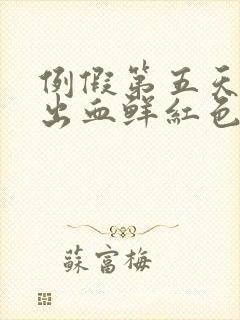 例假第五天
出血鲜紅色
蘇富梅